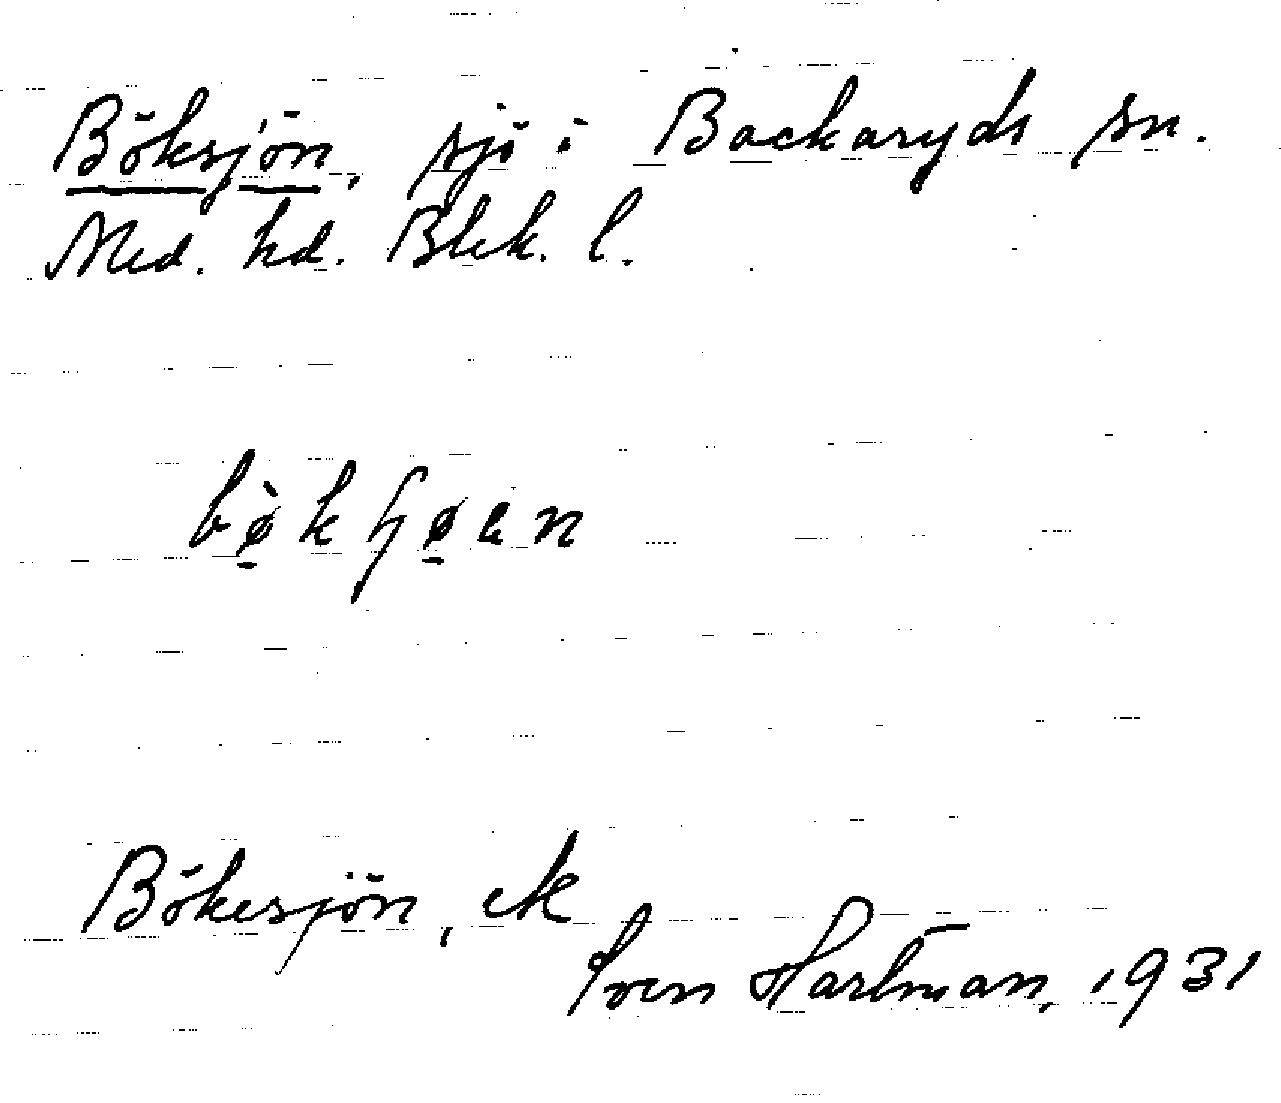 Böksjön, sjö i Backaryds sn.
Med. hd. Blek. l.
bø̀kʃøən
Bökesjön, ek
Sven Hartman, 1931